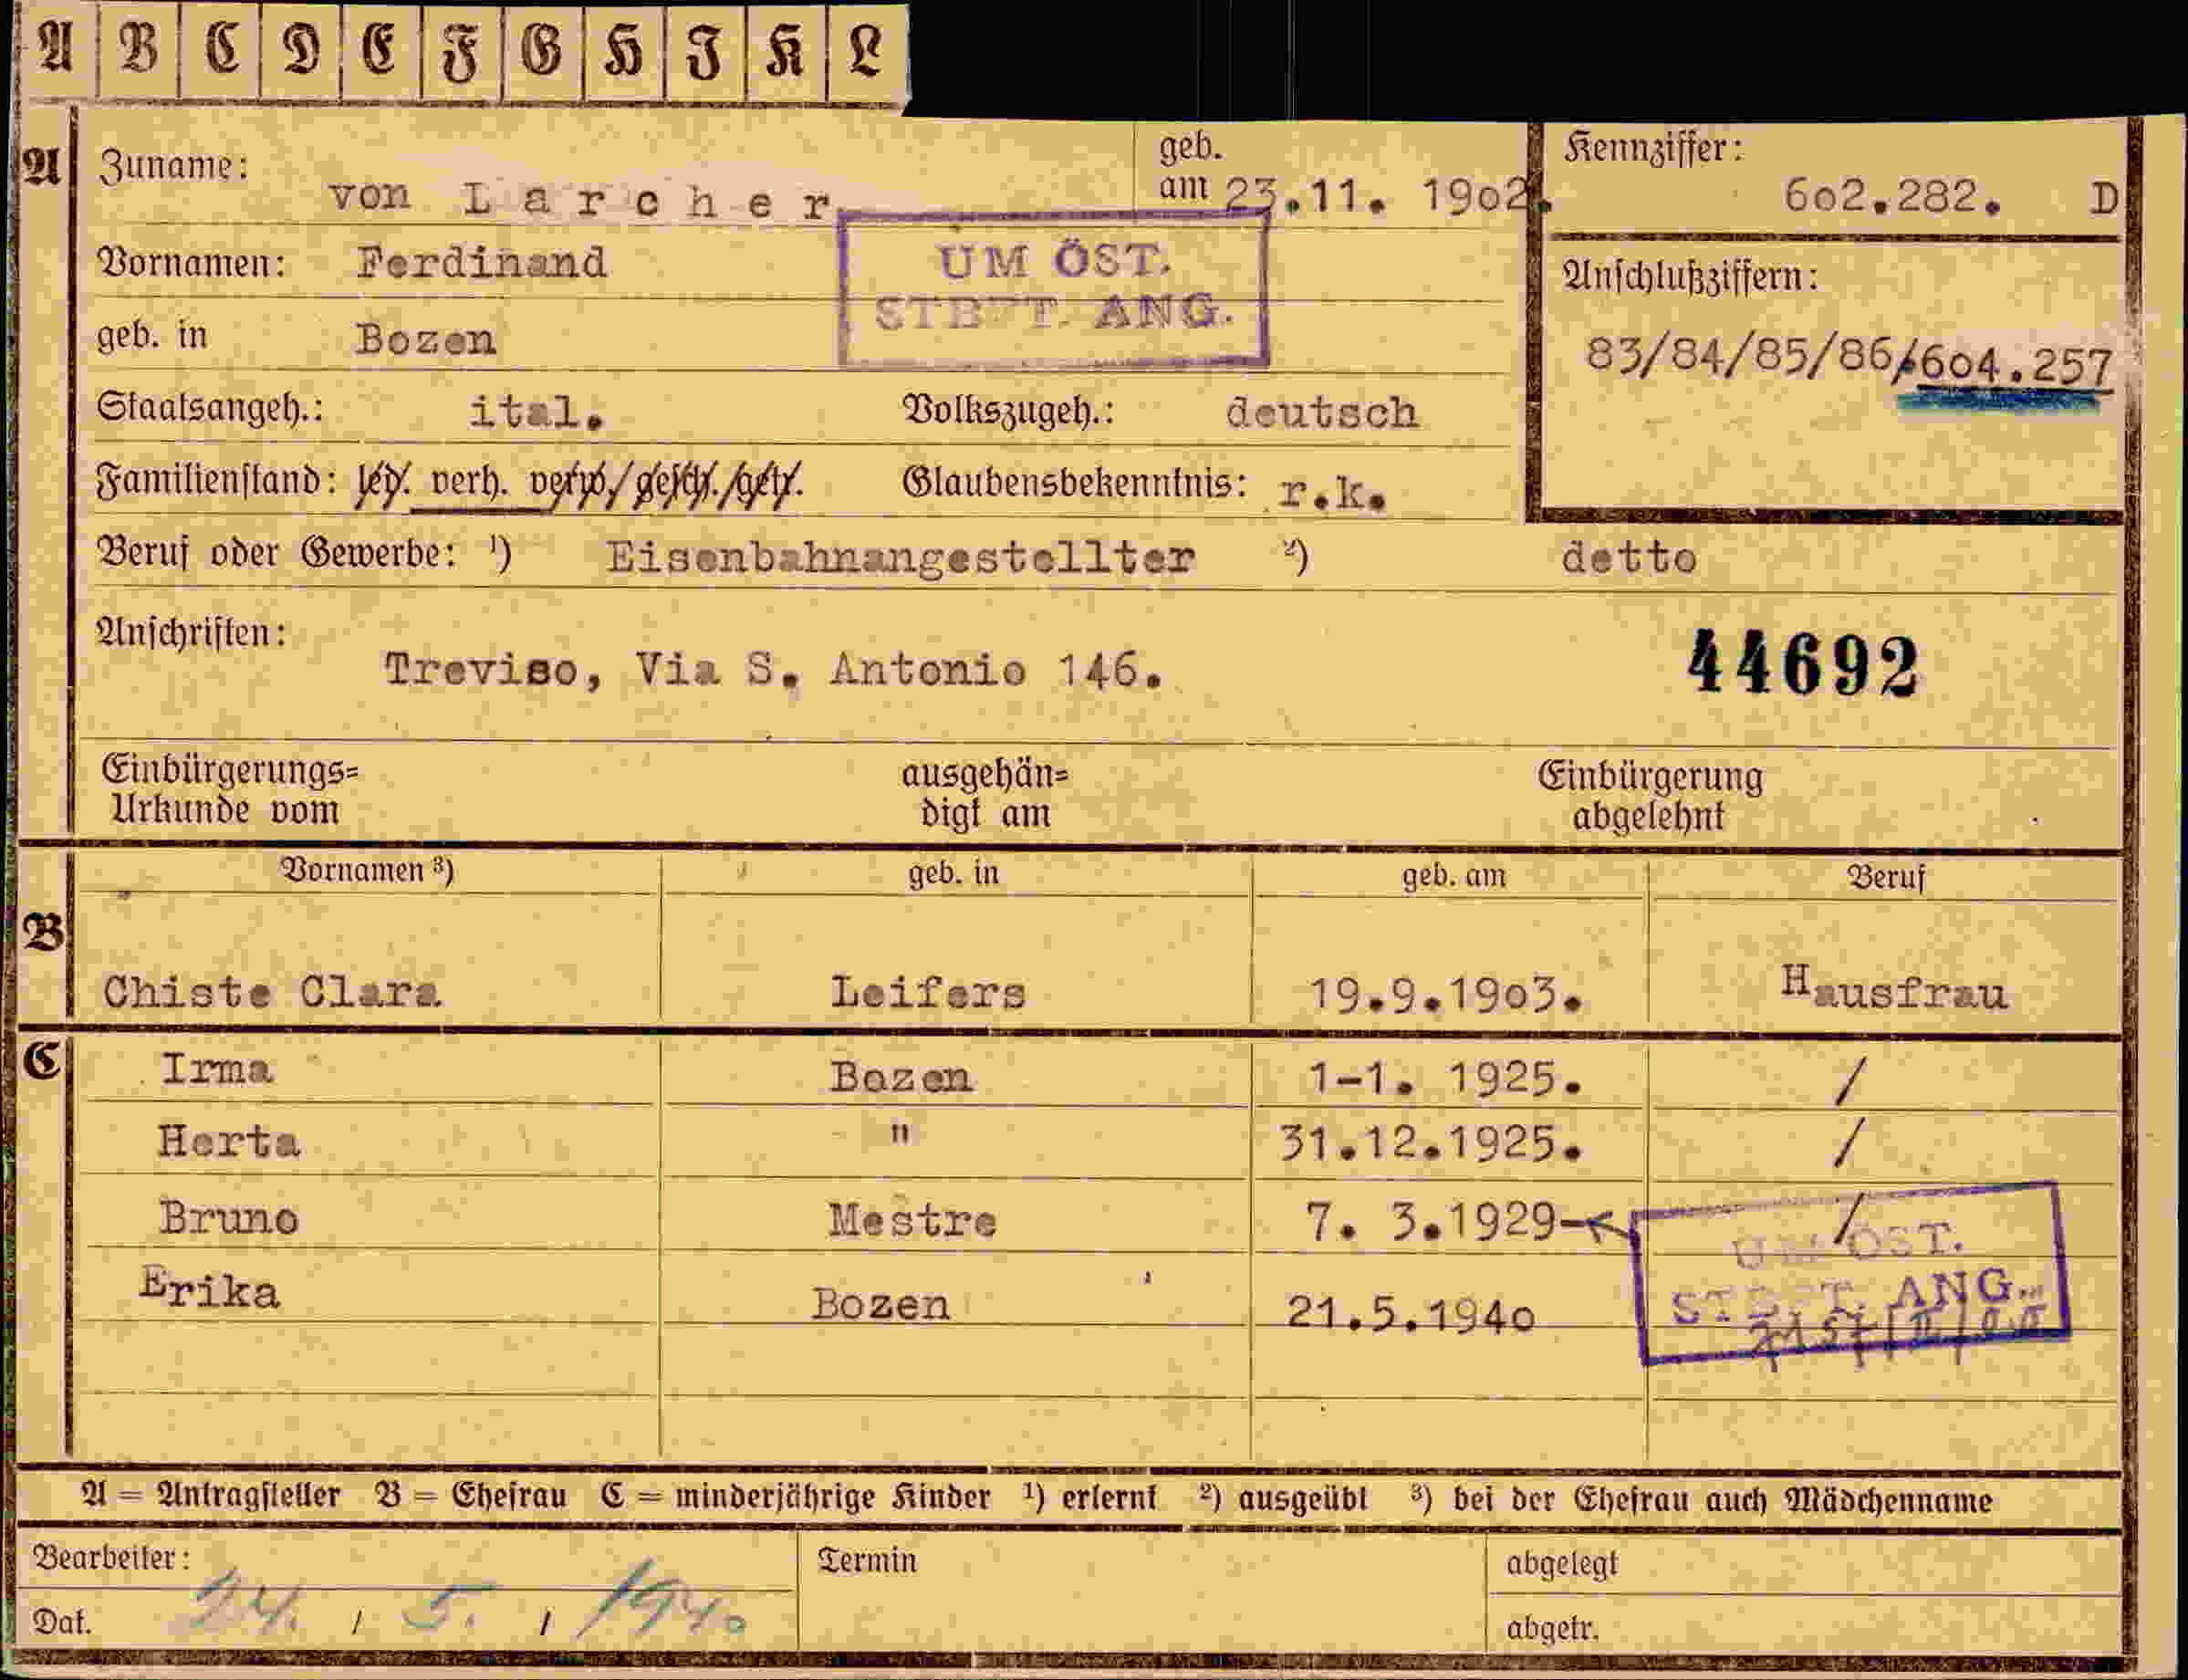 A B C D E F G H J K L
A Zuname: von Larcher geb. am 23.11. 1902. Kennziffer: 602.282. D
Vornamen: Ferdinand
UM ÖST.
ANG.
Anschlußziffern:
geb. in Bozen
83/84/85/86/604.257
Staatsangeh.: ital. Volkszugeh.: deutsch
Familienstand: led. verh. verw./gesch./getr. Glaubensbekenntnis: r.k.
Beruf oder Gewerbe: ¹) Eisenbahnangestellter ²) detto
Anschriften:
Treviso, Via S. Antonio 146. 44692
Einbürgerungs= ausgehän= Einbürgerung
Urkunde vom digt am abgelehnt
Vornamen ³) geb. in geb. am Beruf
B
Chiste Clara Leifers 19.9.1903. Hausfrau
C Irma Bozen 1-1. 1925. /
Herta " 31.12.1925. /
Bruno Mestre 7. 3.1929- /
UM ÖST.
Erika Bozen 21.5.1940
ANG.
A = Antragsteller B = Ehefrau C = minderjährige Kinder ¹) erlernt ²) ausgeübt ³) bei der Ehefrau auch Mädchenname
Bearbeiter: Termin abgelegt
Dat. 24. / 5. / 1940 abgetr.